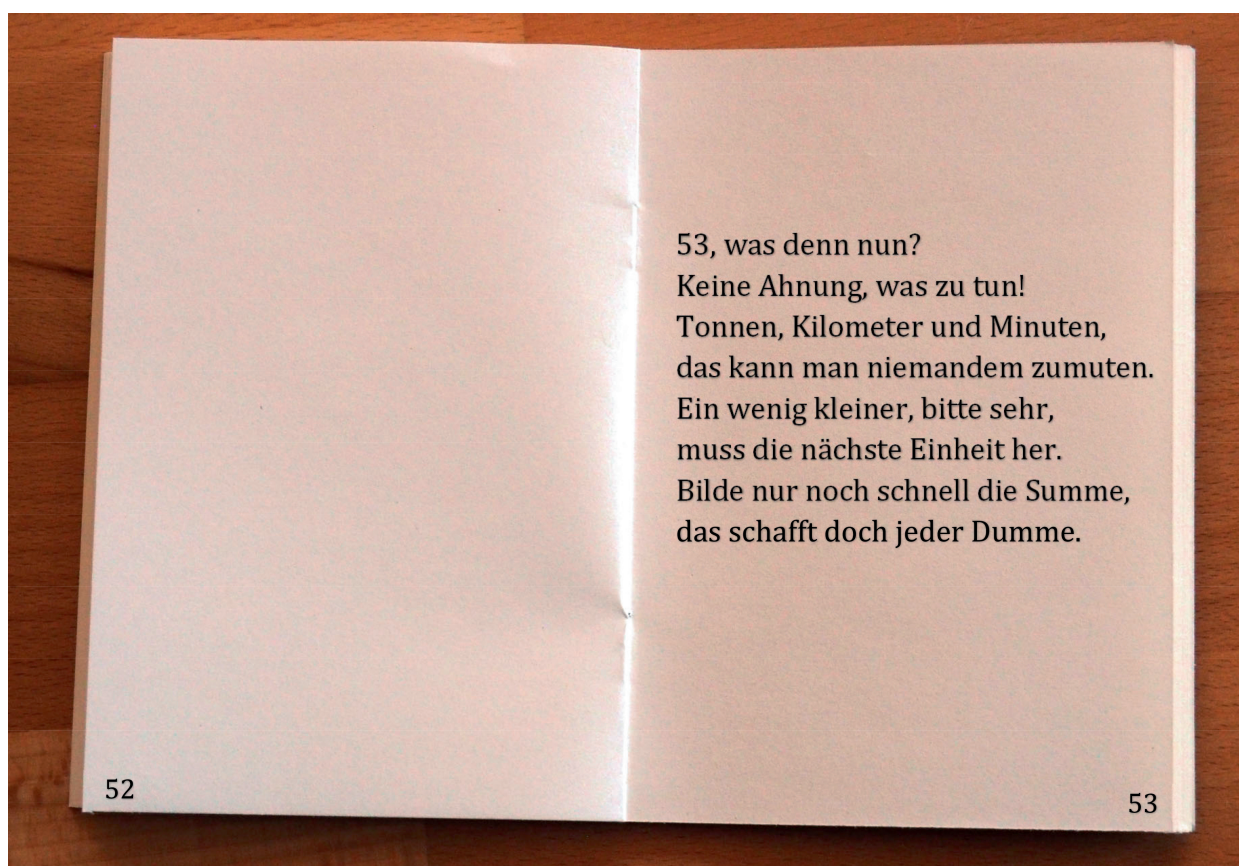 53, was denn nun?
Keine Ahnung, was zu tun!
Tonnen, Kilometer und Minuten,
das kann man niemandem zumuten.
Ein wenig kleiner, bitte sehr,
muss die nächste Einheit her.
Bilde nur noch schnell die Summe,
das schafft doch jeder Dumme.
52
53